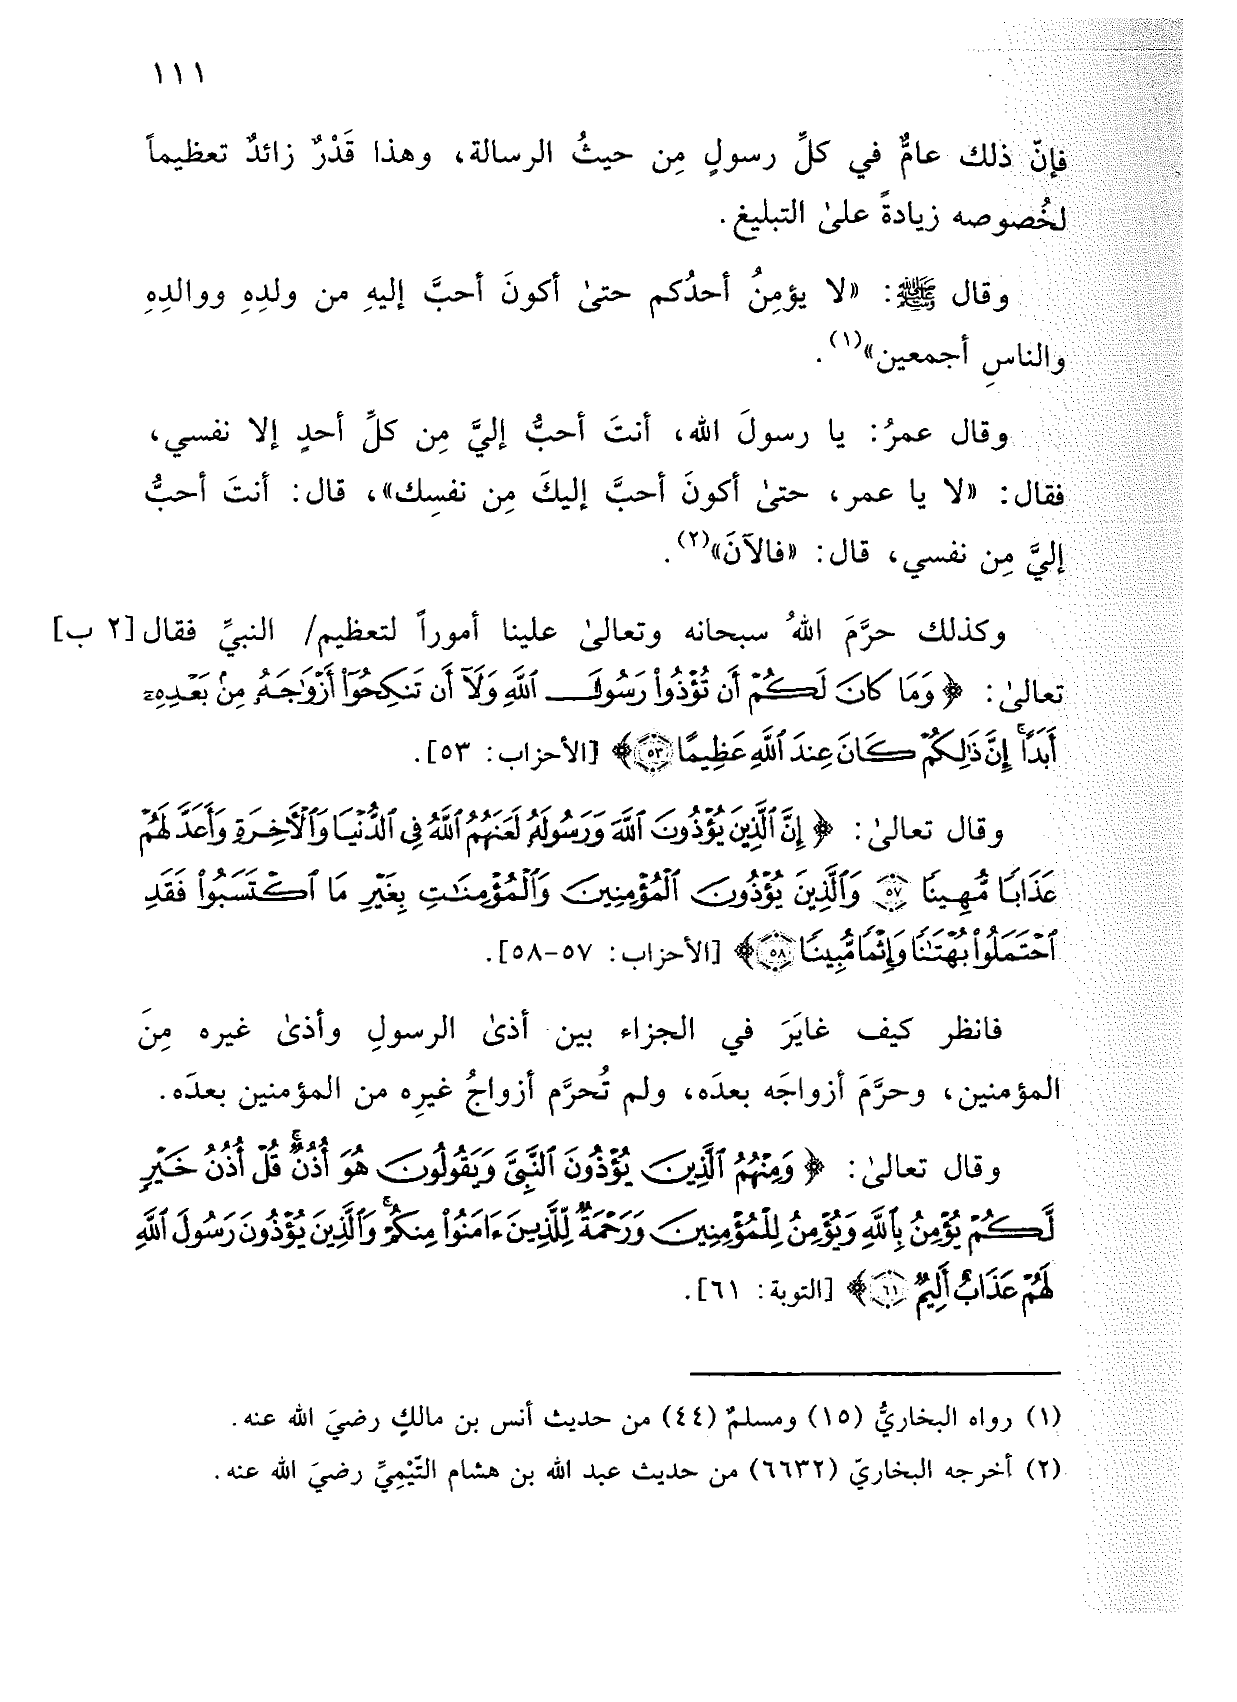 ١١١
فإنّ ذلك عامٌّ في كلِّ رسولٍ مِن حيثُ الرسالة، وهذا قَدْرٌ زائدٌ تعظيماً
لخُصوصه زيادةً علىٰ التبليغ.
وقال ﷺ: «لا يؤمِنُ أحدُكم حتىٰ أكونَ أحبَّ إليهِ من ولدِهِ ووالدِهِ
والناسِ أجمعين»(١).
وقال عمرُ: يا رسولَ الله، أنتَ أحبُّ إليَّ مِن كلِّ أحدٍ إلا نفسي،
فقال: «لا يا عمر، حتىٰ أكونَ أحبَّ إليكَ مِن نفسِك»، قال: أنتَ أحبُّ
إليَّ مِن نفسي، قال: «فالآنَ»(٢).
وكذلك حرَّمَ اللهُ سبحانه وتعالىٰ علينا أموراً لتعظيم/ النبيِّ فقال [٢ ب]
تعالىٰ: ﴿وَمَا كَانَ لَكُمْ أَن تُؤْذُوا۟ رَسُولَ ٱللَّهِ وَلَآ أَن تَنكِحُوٓا۟ أَزْوَٰجَهُۥ مِنۢ بَعْدِهِۦٓ
أَبَدًا ۚ إِنَّ ذَٰلِكُمْ كَانَ عِندَ ٱللَّهِ عَظِيمًا ٥٣﴾ [الأحزاب: ٥٣].
وقال تعالىٰ: ﴿إِنَّ ٱلَّذِينَ يُؤْذُونَ ٱللَّهَ وَرَسُولَهُۥ لَعَنَهُمُ ٱللَّهُ فِى ٱلدُّنْيَا وَٱلْأَخِرَةِ وَأَعَدَّ لَهُمْ
عَذَابًا مُّهِينًا ٥٧ وَٱلَّذِينَ يُؤْذُونَ ٱلْمُؤْمِنِينَ وَٱلْمُؤْمِنَٰتِ بِغَيْرِ مَا ٱكْتَسَبُوا۟ فَقَدِ
ٱحْتَمَلُوا۟ بُهْتَٰنًا وَإِثْمًا مُّبِينًا ٥٨﴾ [الأحزاب: ٥٧-٥٨].
فانظر كيف غايَرَ في الجزاء بين أذىٰ الرسولِ وأذىٰ غيره مِنَ
المؤمنين، وحرَّمَ أزواجَه بعدَه، ولم تُحرَّم أزواجُ غيرِه من المؤمنين بعدَه.
وقال تعالىٰ: ﴿وَمِنْهُمُ ٱلَّذِينَ يُؤْذُونَ ٱلنَّبِىَّ وَيَقُولُونَ هُوَ أُذُنٌ ۚ قُلْ أُذُنُ خَيْرٍ
لَّكُمْ يُؤْمِنُ بِٱللَّهِ وَيُؤْمِنُ لِلْمُؤْمِنِينَ وَرَحْمَةٌ لِّلَّذِينَ ءَامَنُوا۟ مِنكُمْ ۚ وَٱلَّذِينَ يُؤْذُونَ رَسُولَ ٱللَّهِ
لَهُمْ عَذَابٌ أَلِيمٌ ٦١﴾ [التوبة: ٦١].
(١) رواه البخاريُّ (١٥) ومسلمٌ (٤٤) من حديث أنس بن مالكٍ رضيَ الله عنه.
(٢) أخرجه البخاريّ (٦٦٣٢) من حديث عبد الله بن هشام التَّيْمِيِّ رضيَ الله عنه.